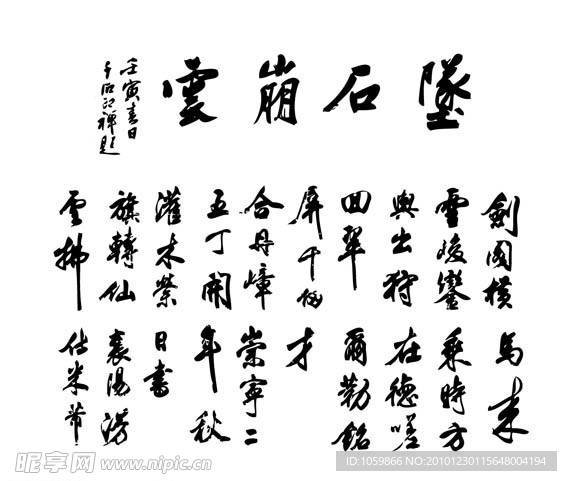 墜石崩雲
壬寅春日
劍國橫
雪峻鑾
輿出狩
回翠
屏千仞
合丹嶂
五丁開
灌木縈
旗轉仙
雲拂
馬來
乘時方
在德嗟
爾勒銘
才
崇寧二
年秋
日書
襄陽漫
仕米芾
昵享网 www.nipic.cn
ID:1059866 NO:20101230115648004194